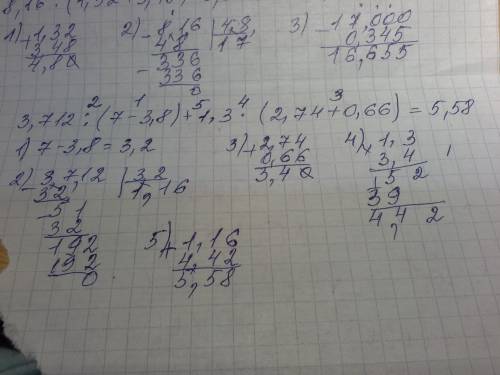 8,16 : (1,32
1) + 1,32
3,48
4,80
2) - 8,16 | 4,8
4,8 17
- 336
336
0
3) - 17,000
0,345
16,655
2 1 5 4 3
3,712 : (7-3,8)+1,3 · (2,74+0,66) = 5,58
1) 7-3,8 = 3,2
2) - 37,12 | 32
32 1,16
- 51
32
192
192
0
3) + 2,74
0,66
3,40
4) × 1,3
3,4
152
39
4,42
5) + 1,16
4,42
5,58